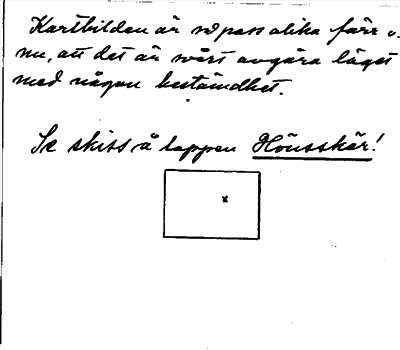 Kartbilden är så pass olika förr o.
nu, att det är svårt avgöra läget
med någon bestämdhet.
Se skiss å lappen Hönsskär!
x